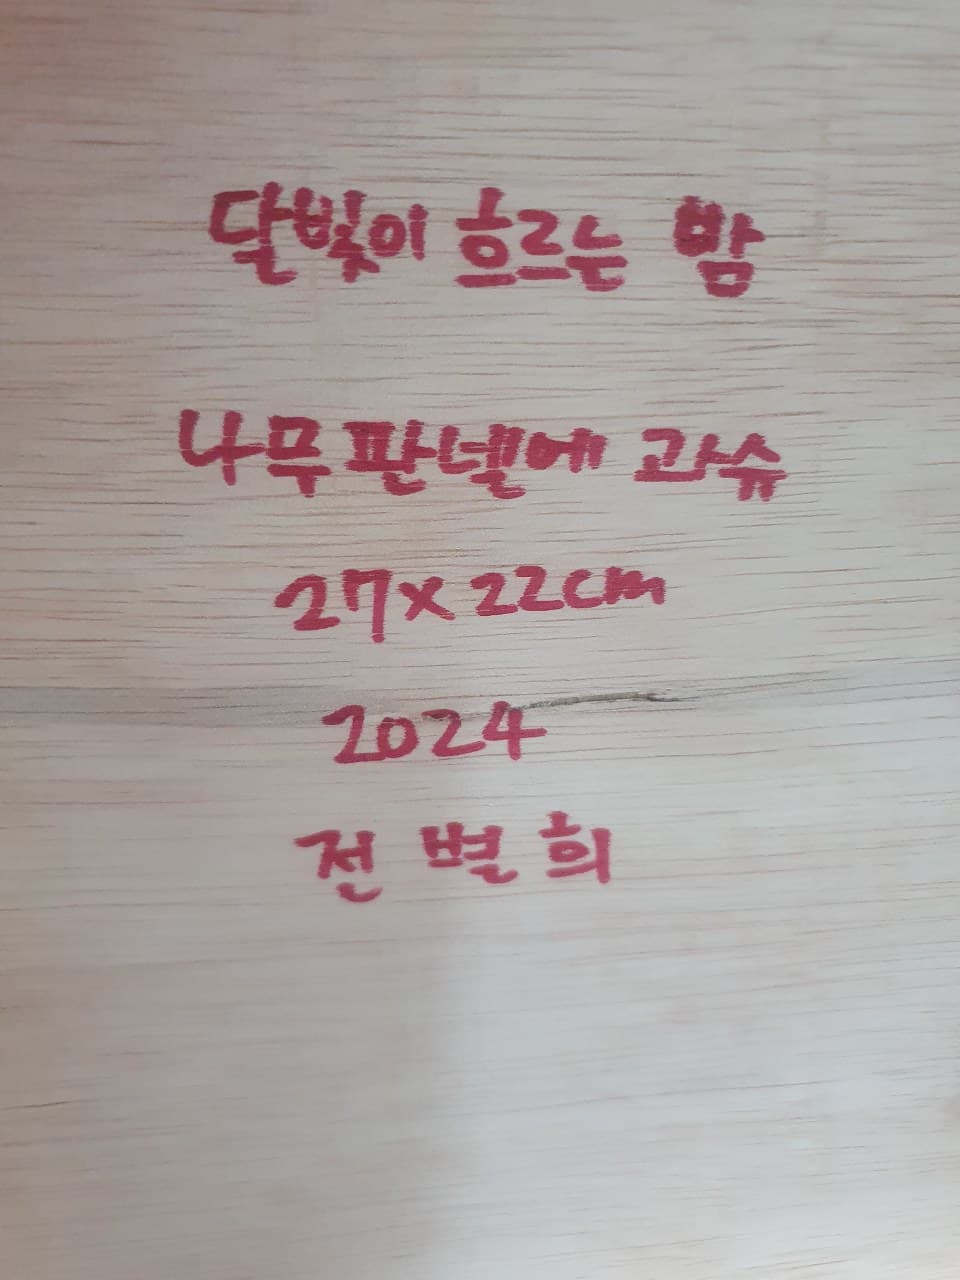 달빛이 흐르는 밤
나무판넬에 과슈
27x22cm
2024
전별희